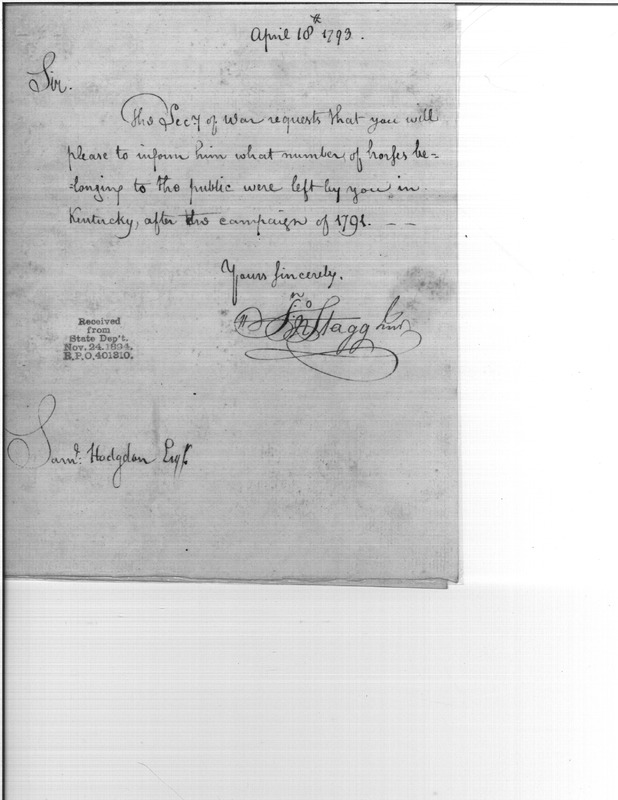 April 18th 1793.
Sir.
The Secy of war requests that you will
please to inform him what number, of horses be=
=longing to the public were left by you in
Kentucky, after the campaign of 1791. — —
Yours sincerely.
Jno Stagg Junr
Received
from
State Dep't.
Nov. 24. 1894.
R.P.O. 401310.
Saml: Hodgdon Esqr.